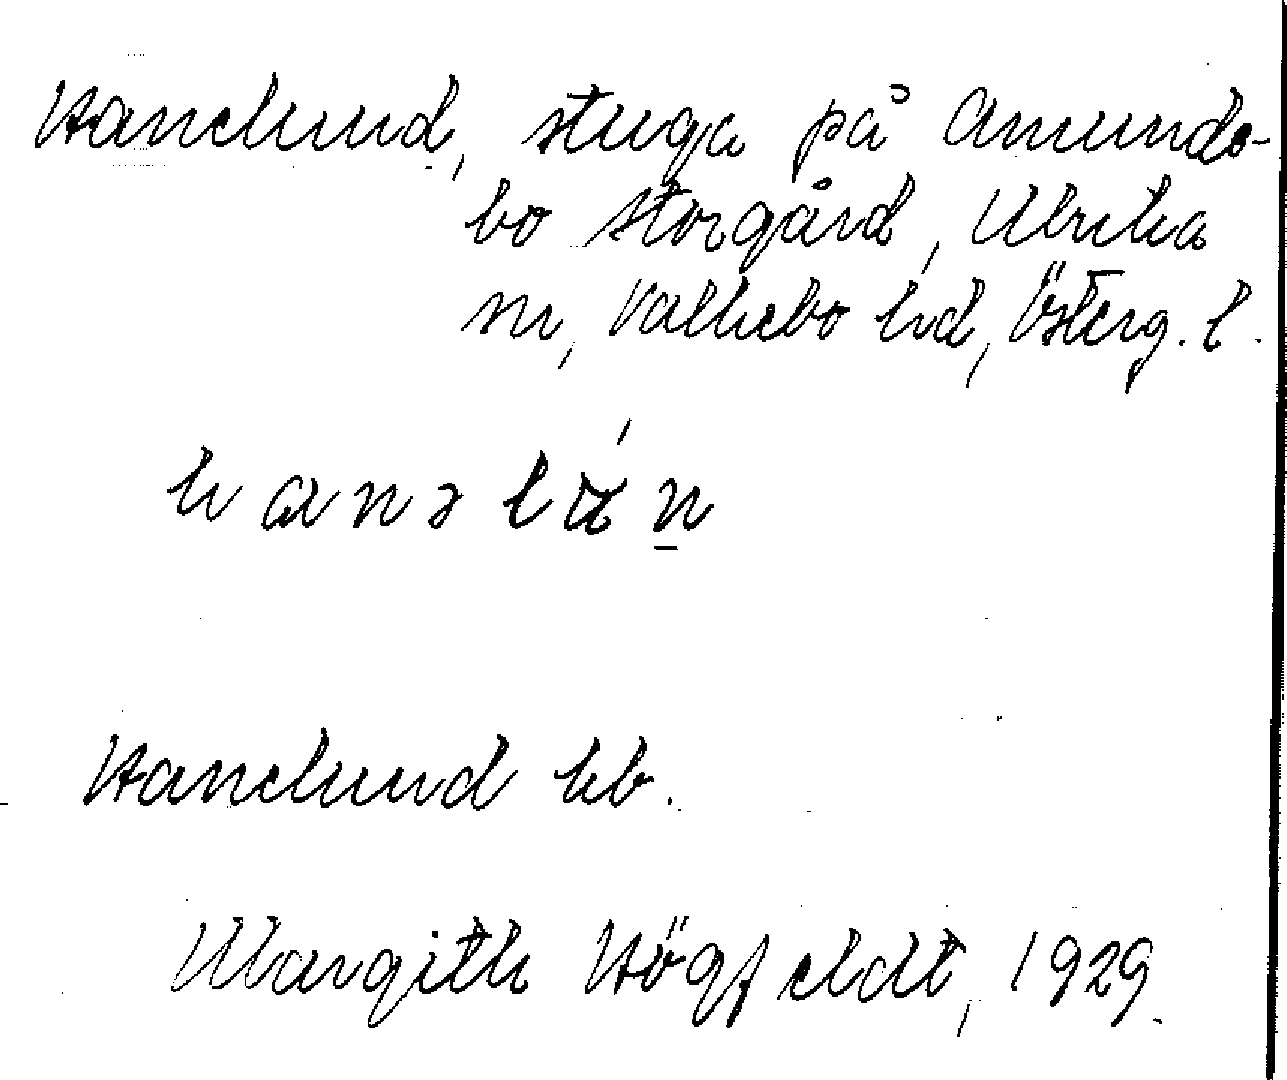 Hanelund, stuga på Amunds-
bo storgård, Ulrika
sn, Valkebo hd, Österg. l.
hanəlún
Hanelund kb.
Margith Högfeldt, 1929.